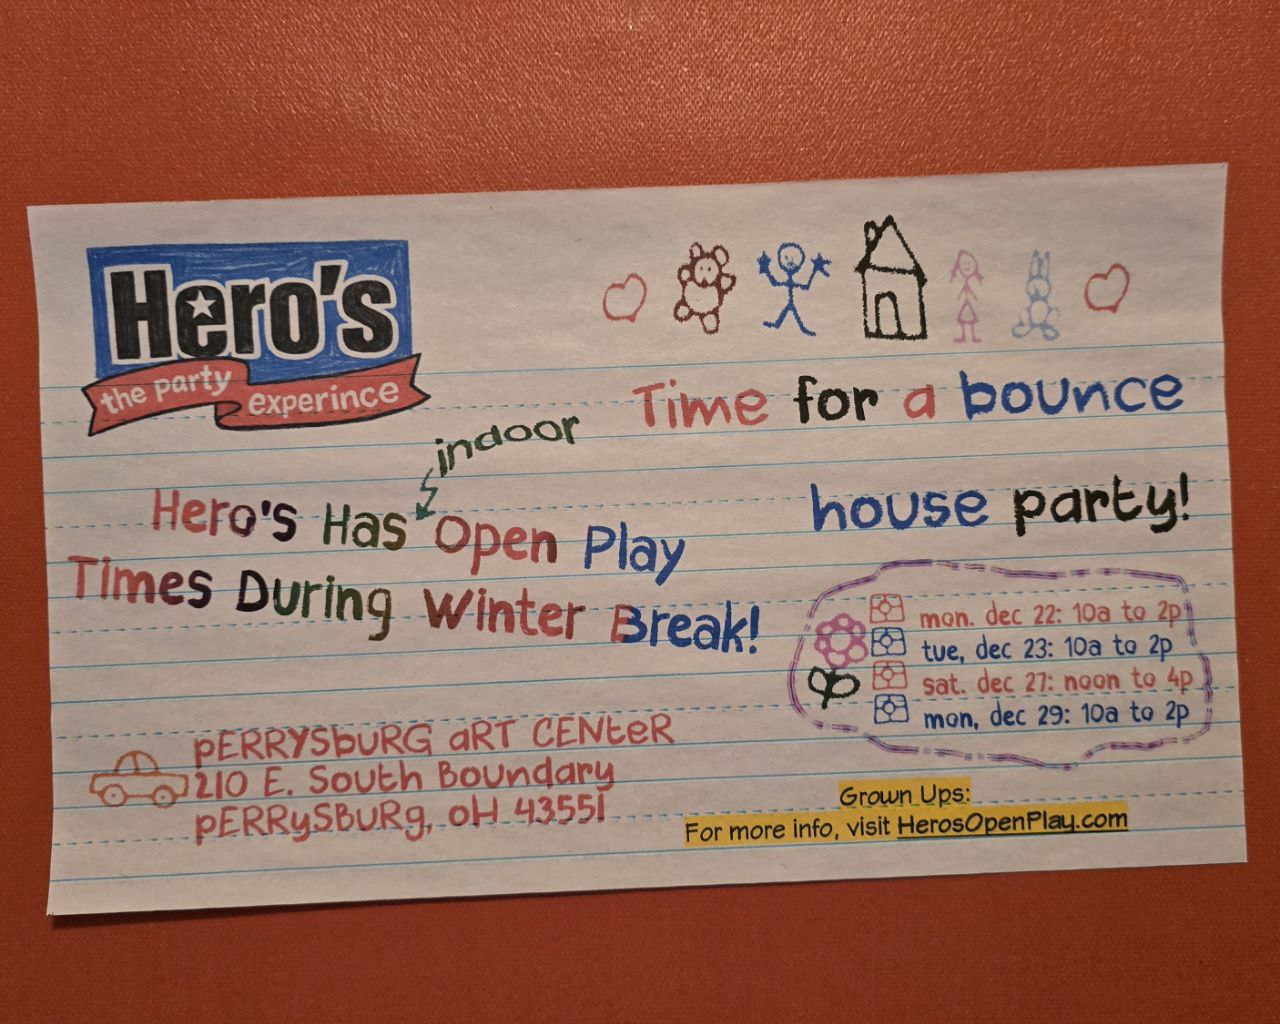 Hero's
the party experince
Time for a bounce
house party!
indoor
Hero's Has Open Play
Times During Winter Break!
mon. dec 22: 10a to 2p
tue, dec 23: 10a to 2p
sat. dec 27: noon to 4p
mon, dec 29: 10a to 2p
pERRYSbURG aRT CENteR
210 E. South Boundary
pERRySBURg, oH 43551
Grown Ups:
For more info, visit HerosOpenPlay.com